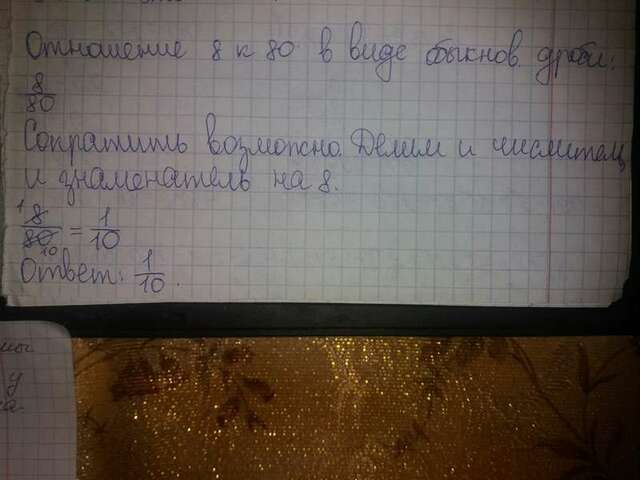 Отношение 8 к 80 в виде обыкнов. дроби:
8/80
Сократить возможно. Делим и числитель
и знаменатель на 8.
1 8/80 10 = 1/10
Ответ: 1/10.
у